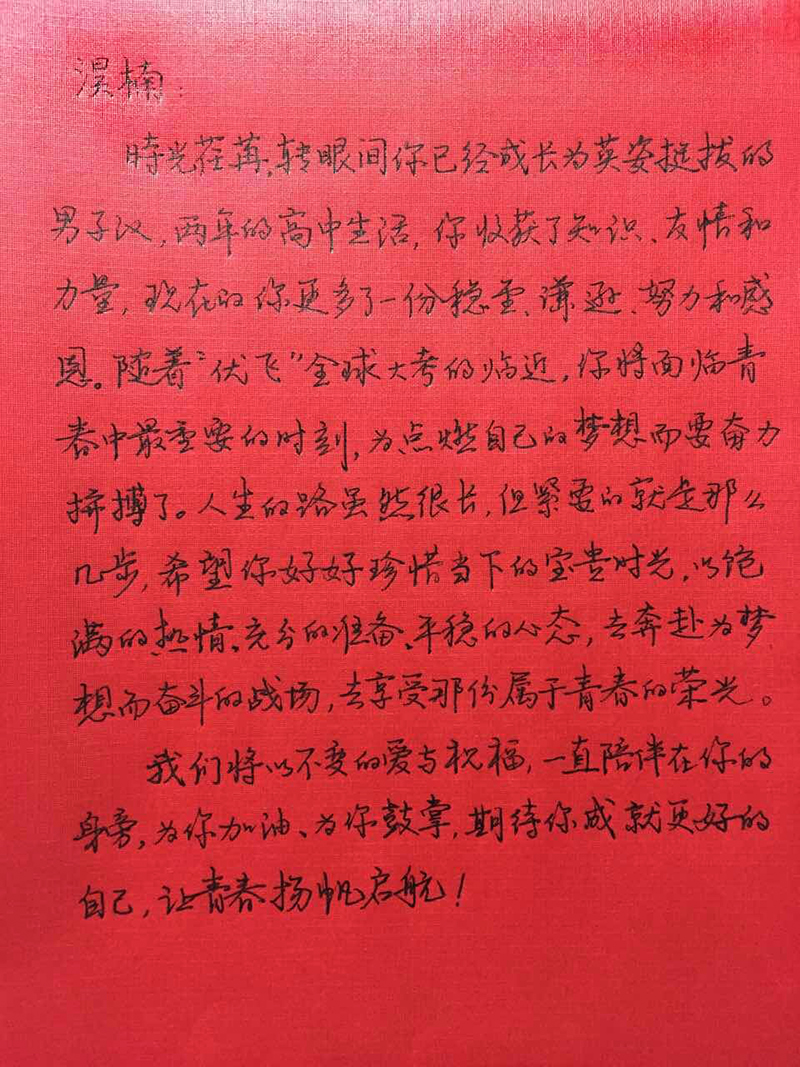 淏楠：
時光荏苒，转眼间你已经成长为英姿挺拔的
男子汉，两年的高中生活，你收获了知识、友情和
力量，现在的你更多了一份稳重、谦逊、努力和感
恩。随着“伏飞”全球大考的临近，你将面临青
春中最重要的时刻，为点燃自己的梦想而要奋力
拼搏了。人生的路虽然很长，但紧要的就是那么
几步，希望你好好珍惜当下的宝贵时光，以饱
满的热情、充分的准备、平稳的心态，去奔赴为梦
想而奋斗的战场，去享受那份属于青春的荣光。
我们将以不变的爱与祝福，一直陪伴在你的
身旁，为你加油、为你鼓掌，期待你成就更好的
自己，让青春扬帆启航！